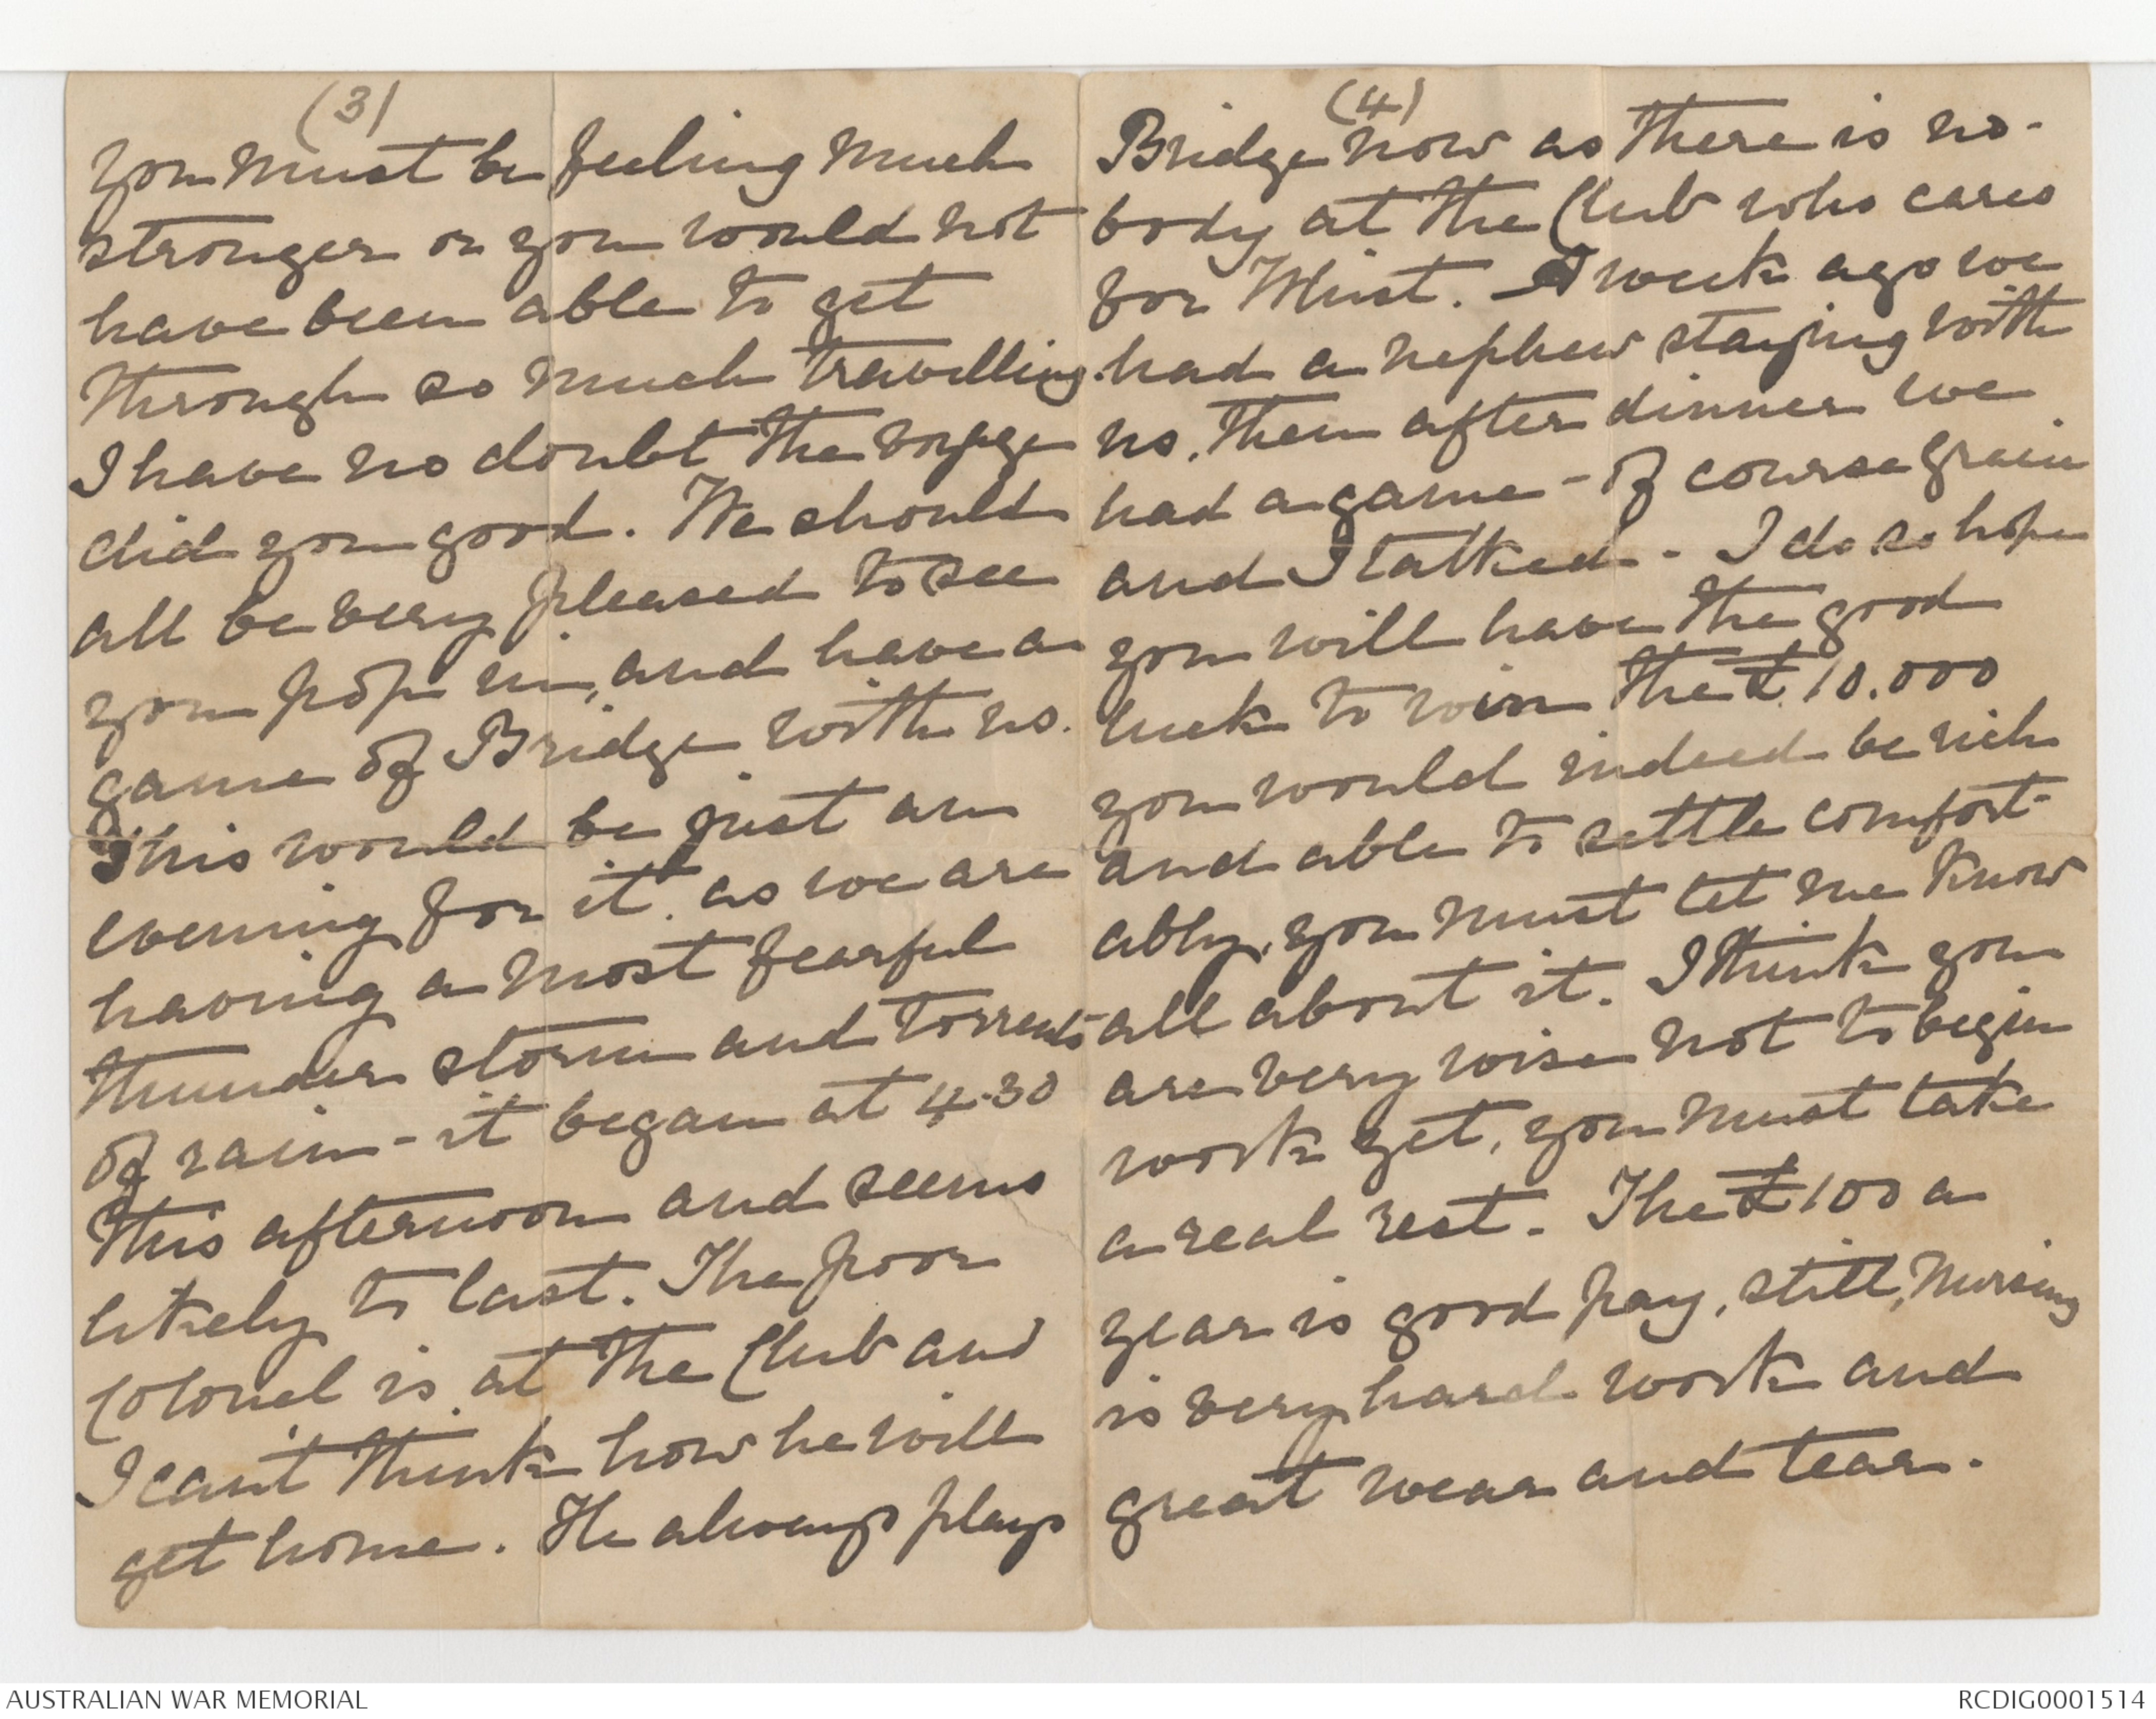 (3)
you must be feeling much
stronger or you would not
have been able to get
through so much travelling.
I have no doubt the voyage
did you good. We should
all be very pleased to see
you pop in, and have a
game of Bridge with us.
This would be just an
evening for it, as we are
having a most fearful
thunder storm and torrents
of rain - it began at 4.30
this afternoon and seems
likely to last. The poor
Colonel is at the Club and
I can't think how he will
get home. He always plays
(4)
Bridge now as there is no-
body at the Club who cares
for Whist. A week ago we
had a nephew staying with
us. Then after dinner we
had a game - of course
and I talked - I do so hope
you will have the good
luck to win the £10.000
you would indeed be rich
and able to settle comfort-
ably, you must let me know
all about it. I think you
are very wise not to begin
work yet, you must take
a real rest. The £100 a
year is good pay, still, Nursing
is very hard work and
great wear and tear.
AUSTRALIAN WAR MEMORIAL
RCDIG0001514